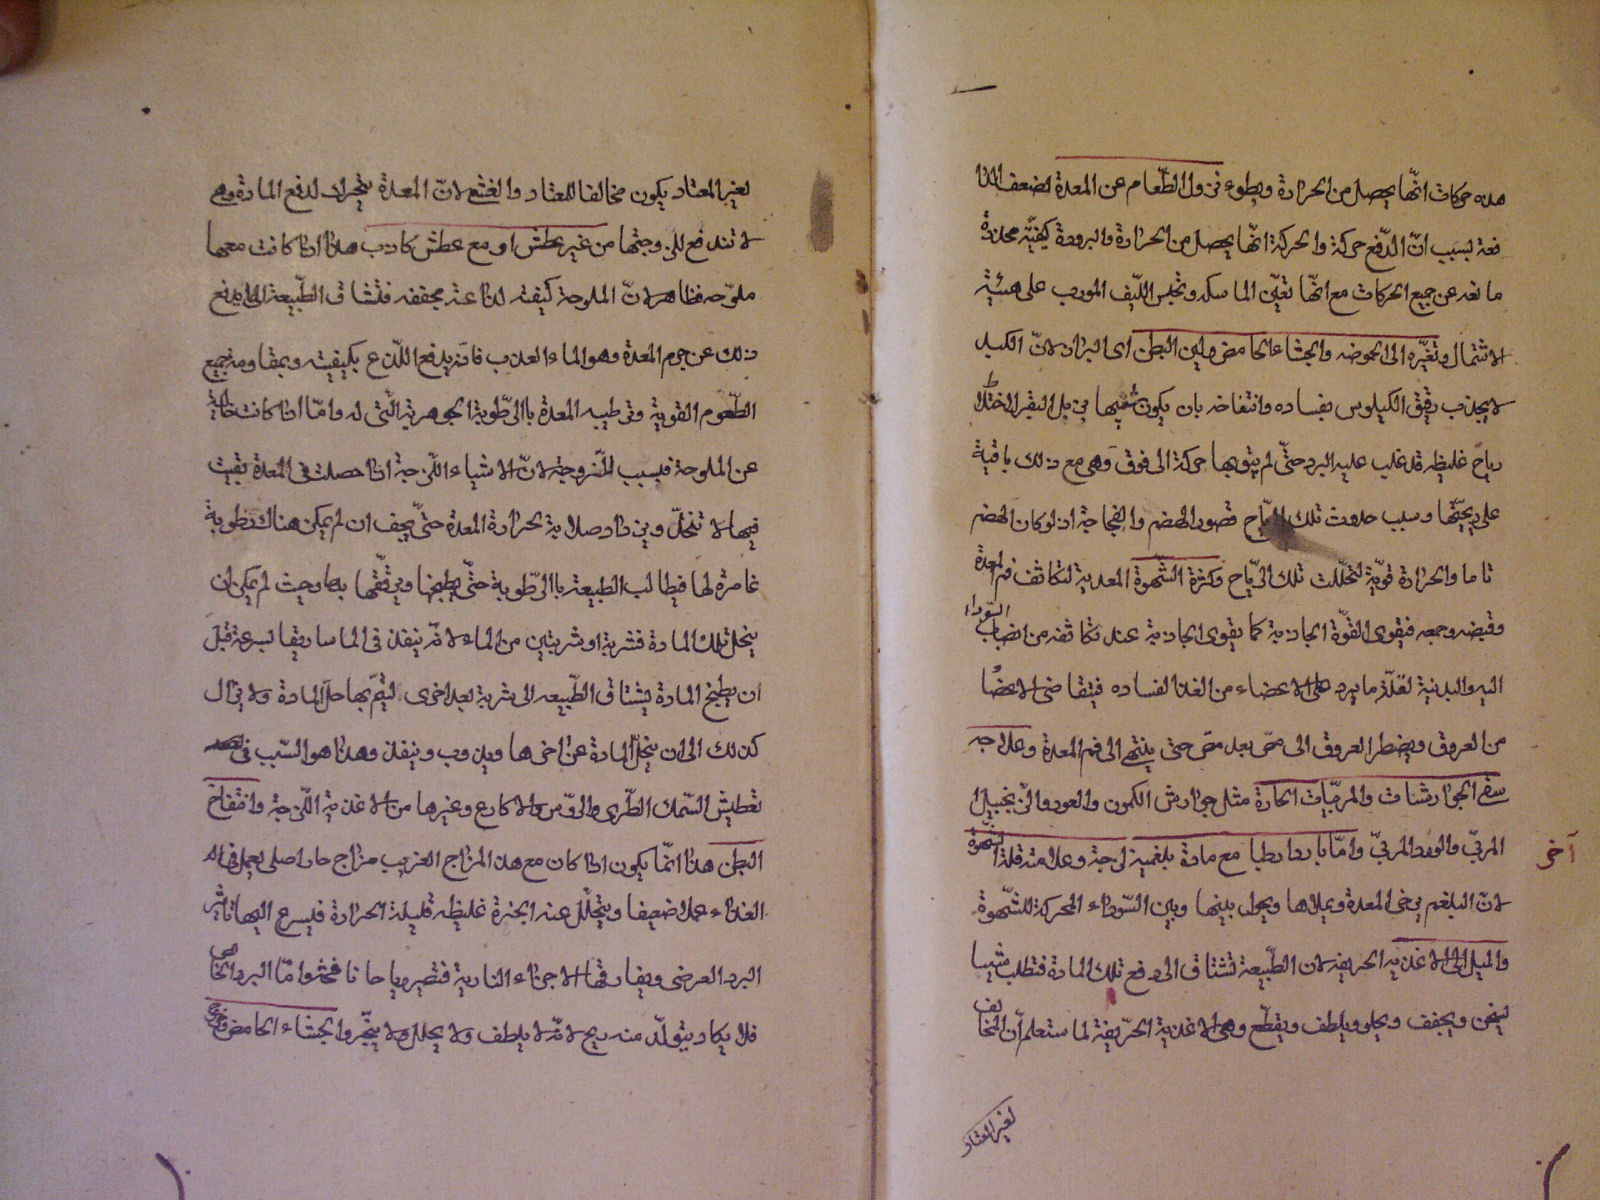 هذه حركات انّها يحصل من الحرارة وبطوء نزول الطّعام عن المعدة لضعف الدا
فعة بسبب انّ الدّفع حركة والحركة انّها يحصل من الحرارة والبرودة كيفيّة مخدرة
ما نعة عن جميع الحركات مع انّها تعيّن الماسكة وتحبس اللّيف المورب على هيئة
الاشتمال وتغيّره الى الحموضة والجشاء الحامض ولين البطن اى البراز لانّ الكبد
لا يجذب رقيق الكيلوس لفساده وانتفاخه بان يكون شبيها بزبل البقر لاختلاط
رياح غليظة قد غلب عليه البرد حتّى لم يبق بها حركة الى فوق وهى مع ذلك باقية
على ريحيّتها وسبب حدوث تلك الرّياح قصور الهضم والفجاجة اذ لو كان الهضم
تاما والحرارة قويّة لتحلّلت تلك الرّياح وكثرة الشّهوة المعدية لتكاثف فم المعدة
وقبضه وجمعه فيقوى القوّة الجاذبة كما يقوى الجاذبة عند تكاثفه من انصباب السّوداء
اليه والبدنية لقلّة ما يرد على الاعضاء من الغذا لفساده فيتقاضى الاعضا
من العروق ويضطر العروق الى مصّ بعد مصّ حتى ينتهى الى فم المعدة وعلاجه
سقى الجوارشنات والمربّيات الحارة مثل جوارش الكمون والعود والزنجبيل
المربّى والوجّ المربّى وامّا باردا رطبا مع مادة بلغمية لزجة وعلامته قلة الشّهوة
آخر
لانّ البلغم يرخى المعدة ويملاها ويحول بينها وبين السّوداء المحركة للشّهوة
والميل الى الاغذية الحريفة لان الطّبيعة تشتاق الى دفع تلك المادة فتطلب شيئا
يسخن ويجفف ويحلل ويلطف ويقطّع وهى الاغذية الحرّيفة لما ستعلم انّ المخالف
لغير المعتاد
لغير المعتاد يكون مخالفا للمعتاد والغثى لانّ المعدة يتحرك لدفع المادة وهى
لا تندفع للزوجتها من غير عطش او مع عطش كاذب هذا اذا كانت معها
ملوّحة فظاهر لانّ الملوحة كيفية لذاعة مجففة فتشتاق الطّبيعة الى ما يدفع
ذلك عن جرم المعدة وهو الماء العذب فانّه يدفع اللّذع بكيفيته وبمقاومته جميع
الطّعوم القوية وترطيبه المعدة بالرّطوبة الجوهرية الّتى له وامّا اذا كانت خالية
عن الملوحة فبسبب اللّزوجة لانّ الاشياء اللّزجة اذا حصلت فى المعدة بقيت
فيها لا تنحلّ ويزداد صلابة بحرارة المعدة حتّى يجف ان لم يكن هناك رطوبة
غامرة لها فيطالب الطبيعة بالرّطوبة حتّى يطبخها ويرقّقها بها وحيث لم يمكن ان
ينحل تلك المادة فشربة او شربتين من الماء لانّه ينفذ فى الماساريقا بسرعة قبل
ان يطبخ المادة يشتاق الطّبيعة الى شربة بعد اخرى ليتمّ بها حلّ المادة ولا يزال
كذلك الى ان ينحلّ المادة عن اخرها ويذوب وينفذ وهذا هو السّبب فى
تعطيش السّمك الطّرى والرّوس والاكارع وغيرها من الاغذية اللّزجة وانتفاخ
البطن هذا انّما يكون اذا كان مع هذا المزاج الغريب مزاج حار اصلى يعمل فى
الغذاء عملا ضعيفا ويتحلّل عنه ابخرة غليظة قليلة الحرارة فليسرع اليها تاثير
البرد العرضى ويفارقها الاجزاء النارية فتصير رياحا نافخة وامّا البرد الخالص
فلا يكاد يتولّد منه ريح لانّه لا يلطف ولا يحلل ولا يبخّر والجشاء الحامض